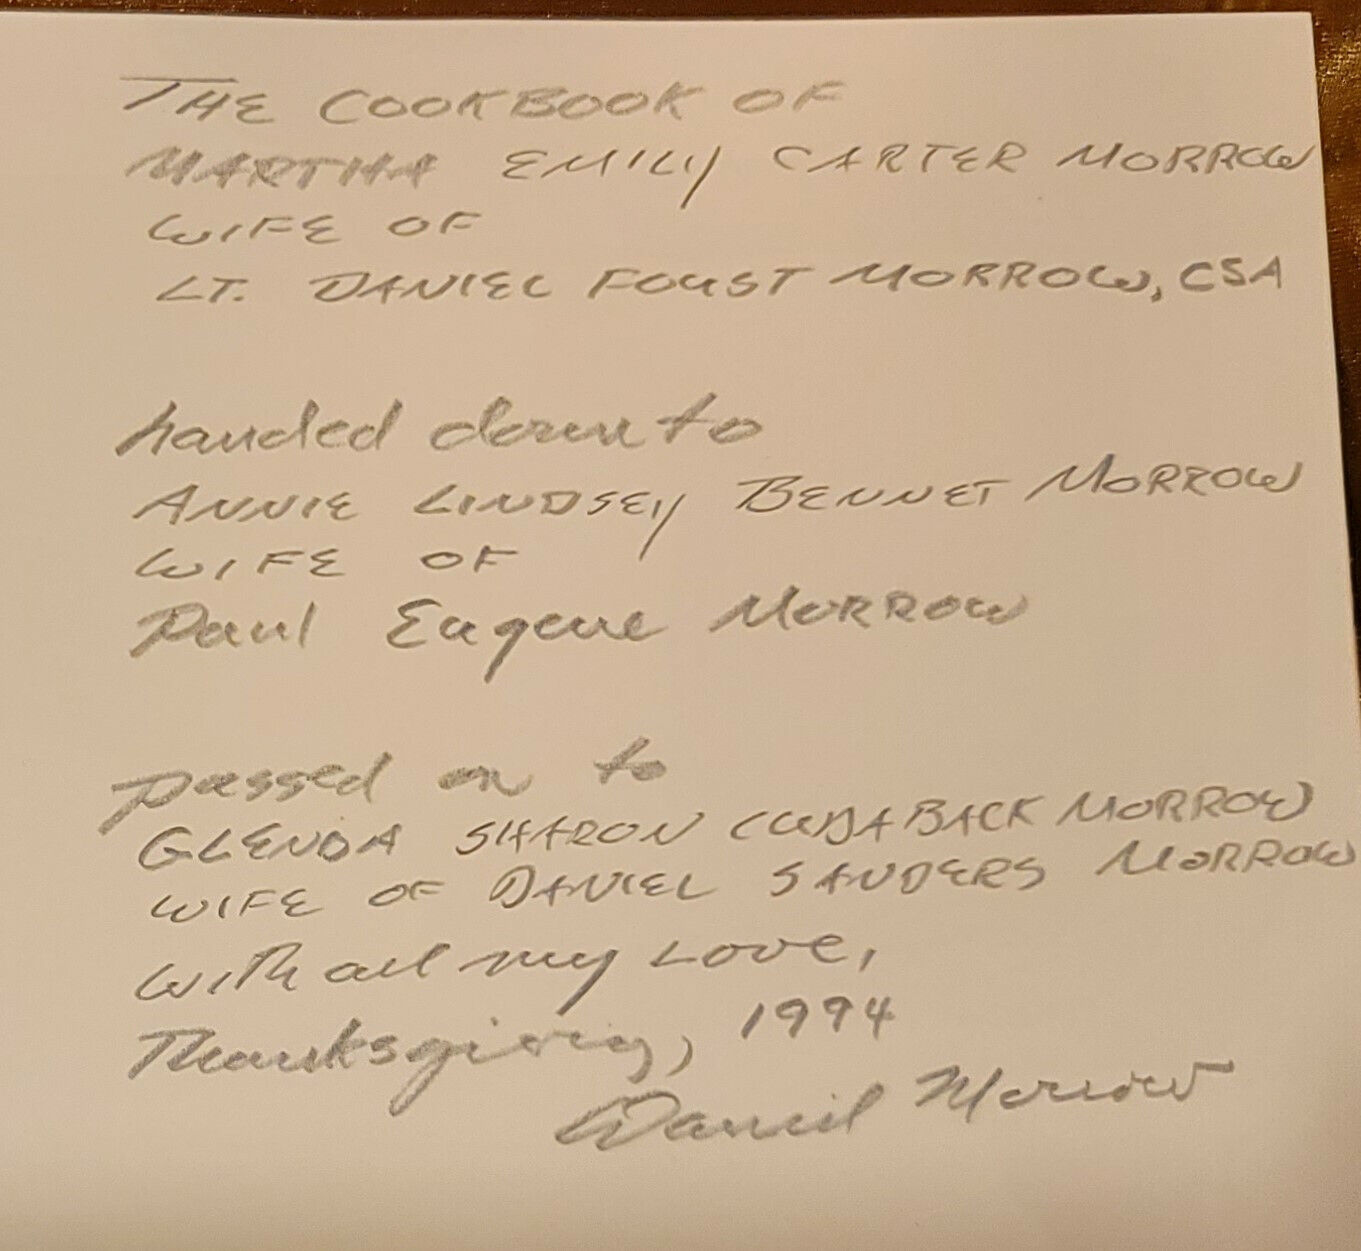 THE COOKBOOK OF
MARTHA EMILY CARTER MORROW
WIFE OF
LT. DANIEL FOUST MORROW, CSA
handed down to
ANNIE LINDSEY BENNET MORROW
WIFE OF
Paul Eugene MORROW
passed on to
GLENDA SHARON CUDABACK MORROW
WIFE OF DANIEL SANDERS MORROW
with all my LOVE,
Thanksgiving, 1994
Daniel Morrow